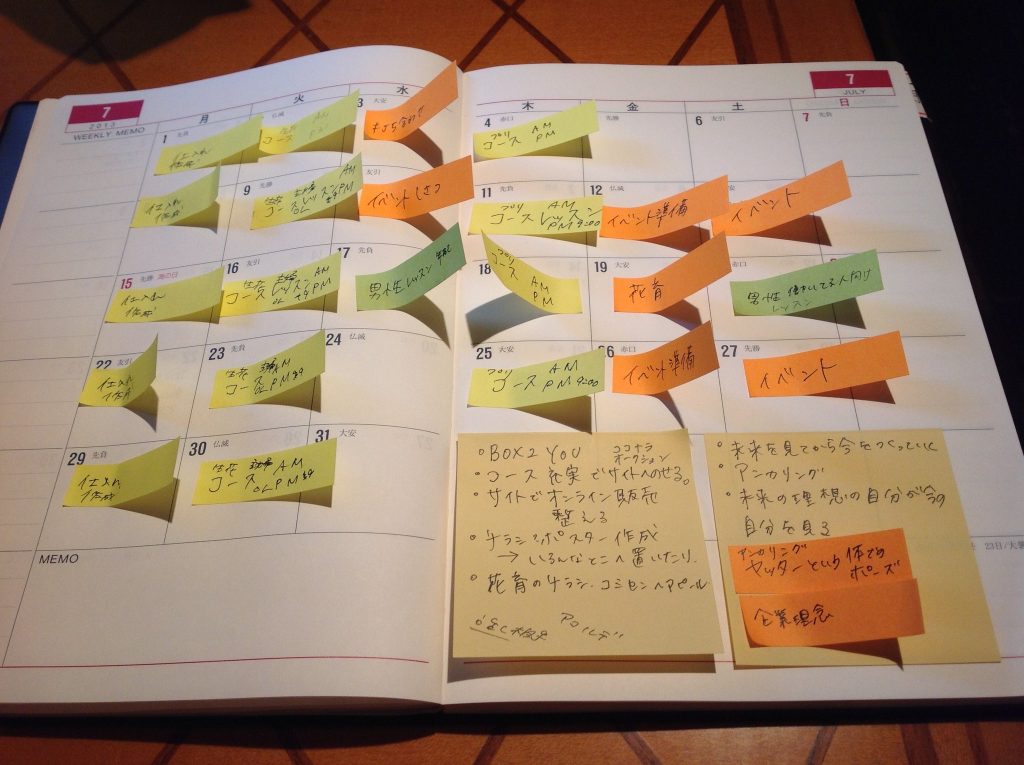 7
2013
WEEKLY MEMO
月
火
水
木
金
土
日
7
JULY
1 先負
仕入れ
作成
仏滅
コース AM
PM
3 大安
4 赤口
プリ
コース AM
PM
先勝
6 友引
7 先負
仕入れ
作成
9 先勝
生花 AM
コースレッスン PM
OL
友引
イベント
11 先負
プリ AM
コースレッスン
PM 9:00
12 仏滅
イベント準備
イベント
15 先勝 海の日
仕入れ
作成
16 友引
生花 AM
コースレッスン
OL PM
17 先負
男性レッスン
18
プリ
コース
AM
PM
19 大安
花育
赤口
男性 働いてる人向け
レッスン
22 友引
仕入れ
作成
23 先負
生花 AM
コース OL PM
24 仏滅
25 大安
プリ
コース AM
PM 9:00
26 赤口
イベント準備
27 先勝
イベント
29 先負
仕入れ
作成
30 仏滅
生花 AM
コース OL PM
31 大安
MEMO
・BOX 2 YOU ココナラ
オークション
・コース充実でサイトへのせる。
・サイトでオンライン販売
整える
・チラシ・ポスター作成
→いろんなとこへ置いたり.
・花育のチラシ・コミセンへアピール
・未来を見てから今をつくっていく
・アンカリング
・未来の理想の自分が今の
自分を見る
アンカリング
ヤッターという体での
ポーズ
企業理念
23日/大暑